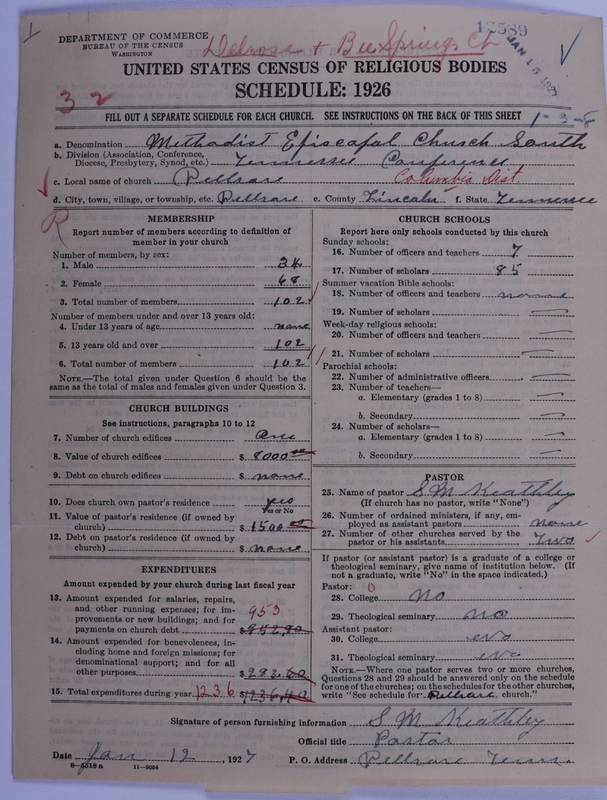 DEPARTMENT OF COMMERCE
BUREAU OF THE CENSUS
WASHINGTON
Delrose + Bee Springs Ch
UNITED STATES CENSUS OF RELIGIOUS BODIES
SCHEDULE: 1926
32
FILL OUT A SEPARATE SCHEDULE FOR EACH CHURCH. SEE INSTRUCTIONS ON THE BACK OF THIS SHEET
1-3-8
a. Denomination Methodist Episcopal Church South
b. Division (Association, Conference, Diocese, Presbytery, Synod, etc.) Tennessee Conference
c. Local name of church Dellrose Columbia Dist.
d. City, town, village, or township, etc. Dellrose e. County Lincoln f. State Tennessee
R
MEMBERSHIP
Report number of members according to definition of
member in your church
Number of members, by sex:
1. Male 34
2. Female 68
3. Total number of members 102
Number of members under and over 13 years old:
4. Under 13 years of age none
5. 13 years old and over 102
6. Total number of members 102
NOTE.—The total given under Question 6 should be
same as the total of males and females given under Question 3.
CHURCH BUILDINGS
See instructions, paragraphs 10 to 12
7. Number of church edifices One
8. Value of church edifices $ 8000 00
9. Debt on church edifices $ none
10. Does church own pastor's residence yes
Yes or No
11. Value of pastor's residence (if owned by
church) $ 1500 00
12. Debt on pastor's residence (if owned by
church) $ none
EXPENDITURES
Amount expended by your church during last fiscal year
13. Amount expended for salaries, repairs,
and other running expenses; for im-
provements or new buildings; and for
payments on church debt $ 952.80 953
14. Amount expended for benevolences, in-
cluding home and foreign missions; for
denominational support; and for all
other purposes $ 283.60
15. Total expenditures during year 1236 $ 1236.40
CHURCH SCHOOLS
Report here only schools conducted by this church
Sunday schools:
16. Number of officers and teachers 7
17. Number of scholars 85
Summer vacation Bible schools:
18. Number of officers and teachers none
19. Number of scholars —
Week-day religious schools:
20. Number of officers and teachers —
21. Number of scholars —
Parochial schools:
22. Number of administrative officers —
23. Number of teachers—
a. Elementary (grades 1 to 8) —
b. Secondary —
24. Number of scholars—
a. Elementary (grades 1 to 8) —
b. Secondary —
PASTOR
25. Name of pastor S M Keathley
(If church has no pastor, write "None")
26. Number of ordained ministers, if any, em-
ployed as assistant pastors none
27. Number of other churches served by the
pastor or his assistants Two
If pastor (or assistant pastor) is a graduate of a college or
theological seminary, give name of institution below. (If
not a graduate, write "No" in the space indicated.)
Pastor: 0
28. College no
29. Theological seminary no
Assistant pastor:
30. College no
31. Theological seminary no
NOTE.—Where one pastor serves two or more churches,
Questions 28 and 29 should be answered only on the schedule
for one of the churches; on the schedules for the other churches,
write "See schedule for Dellrose church."
Signature of person furnishing information S M Keathley
Official title Pastor
Date Jan 12, 1927 P. O. Address Dellrose Tenn.
11—9034